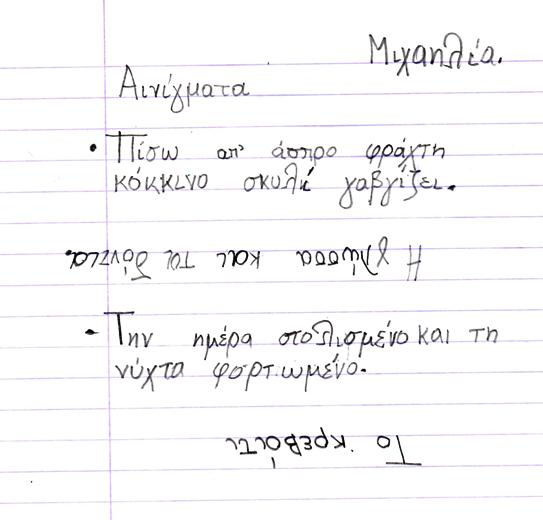 Μιχαηλία.
Αινίγματα
• Πίσω απ' άσπρο φράχτη
κόκκινο σκυλί γαβγίζει.
Η γλώσσα και τα δόντια.
- Την ημέρα στολισμένο και τη
νύχτα φορτωμένο.
Το κρεβάτι